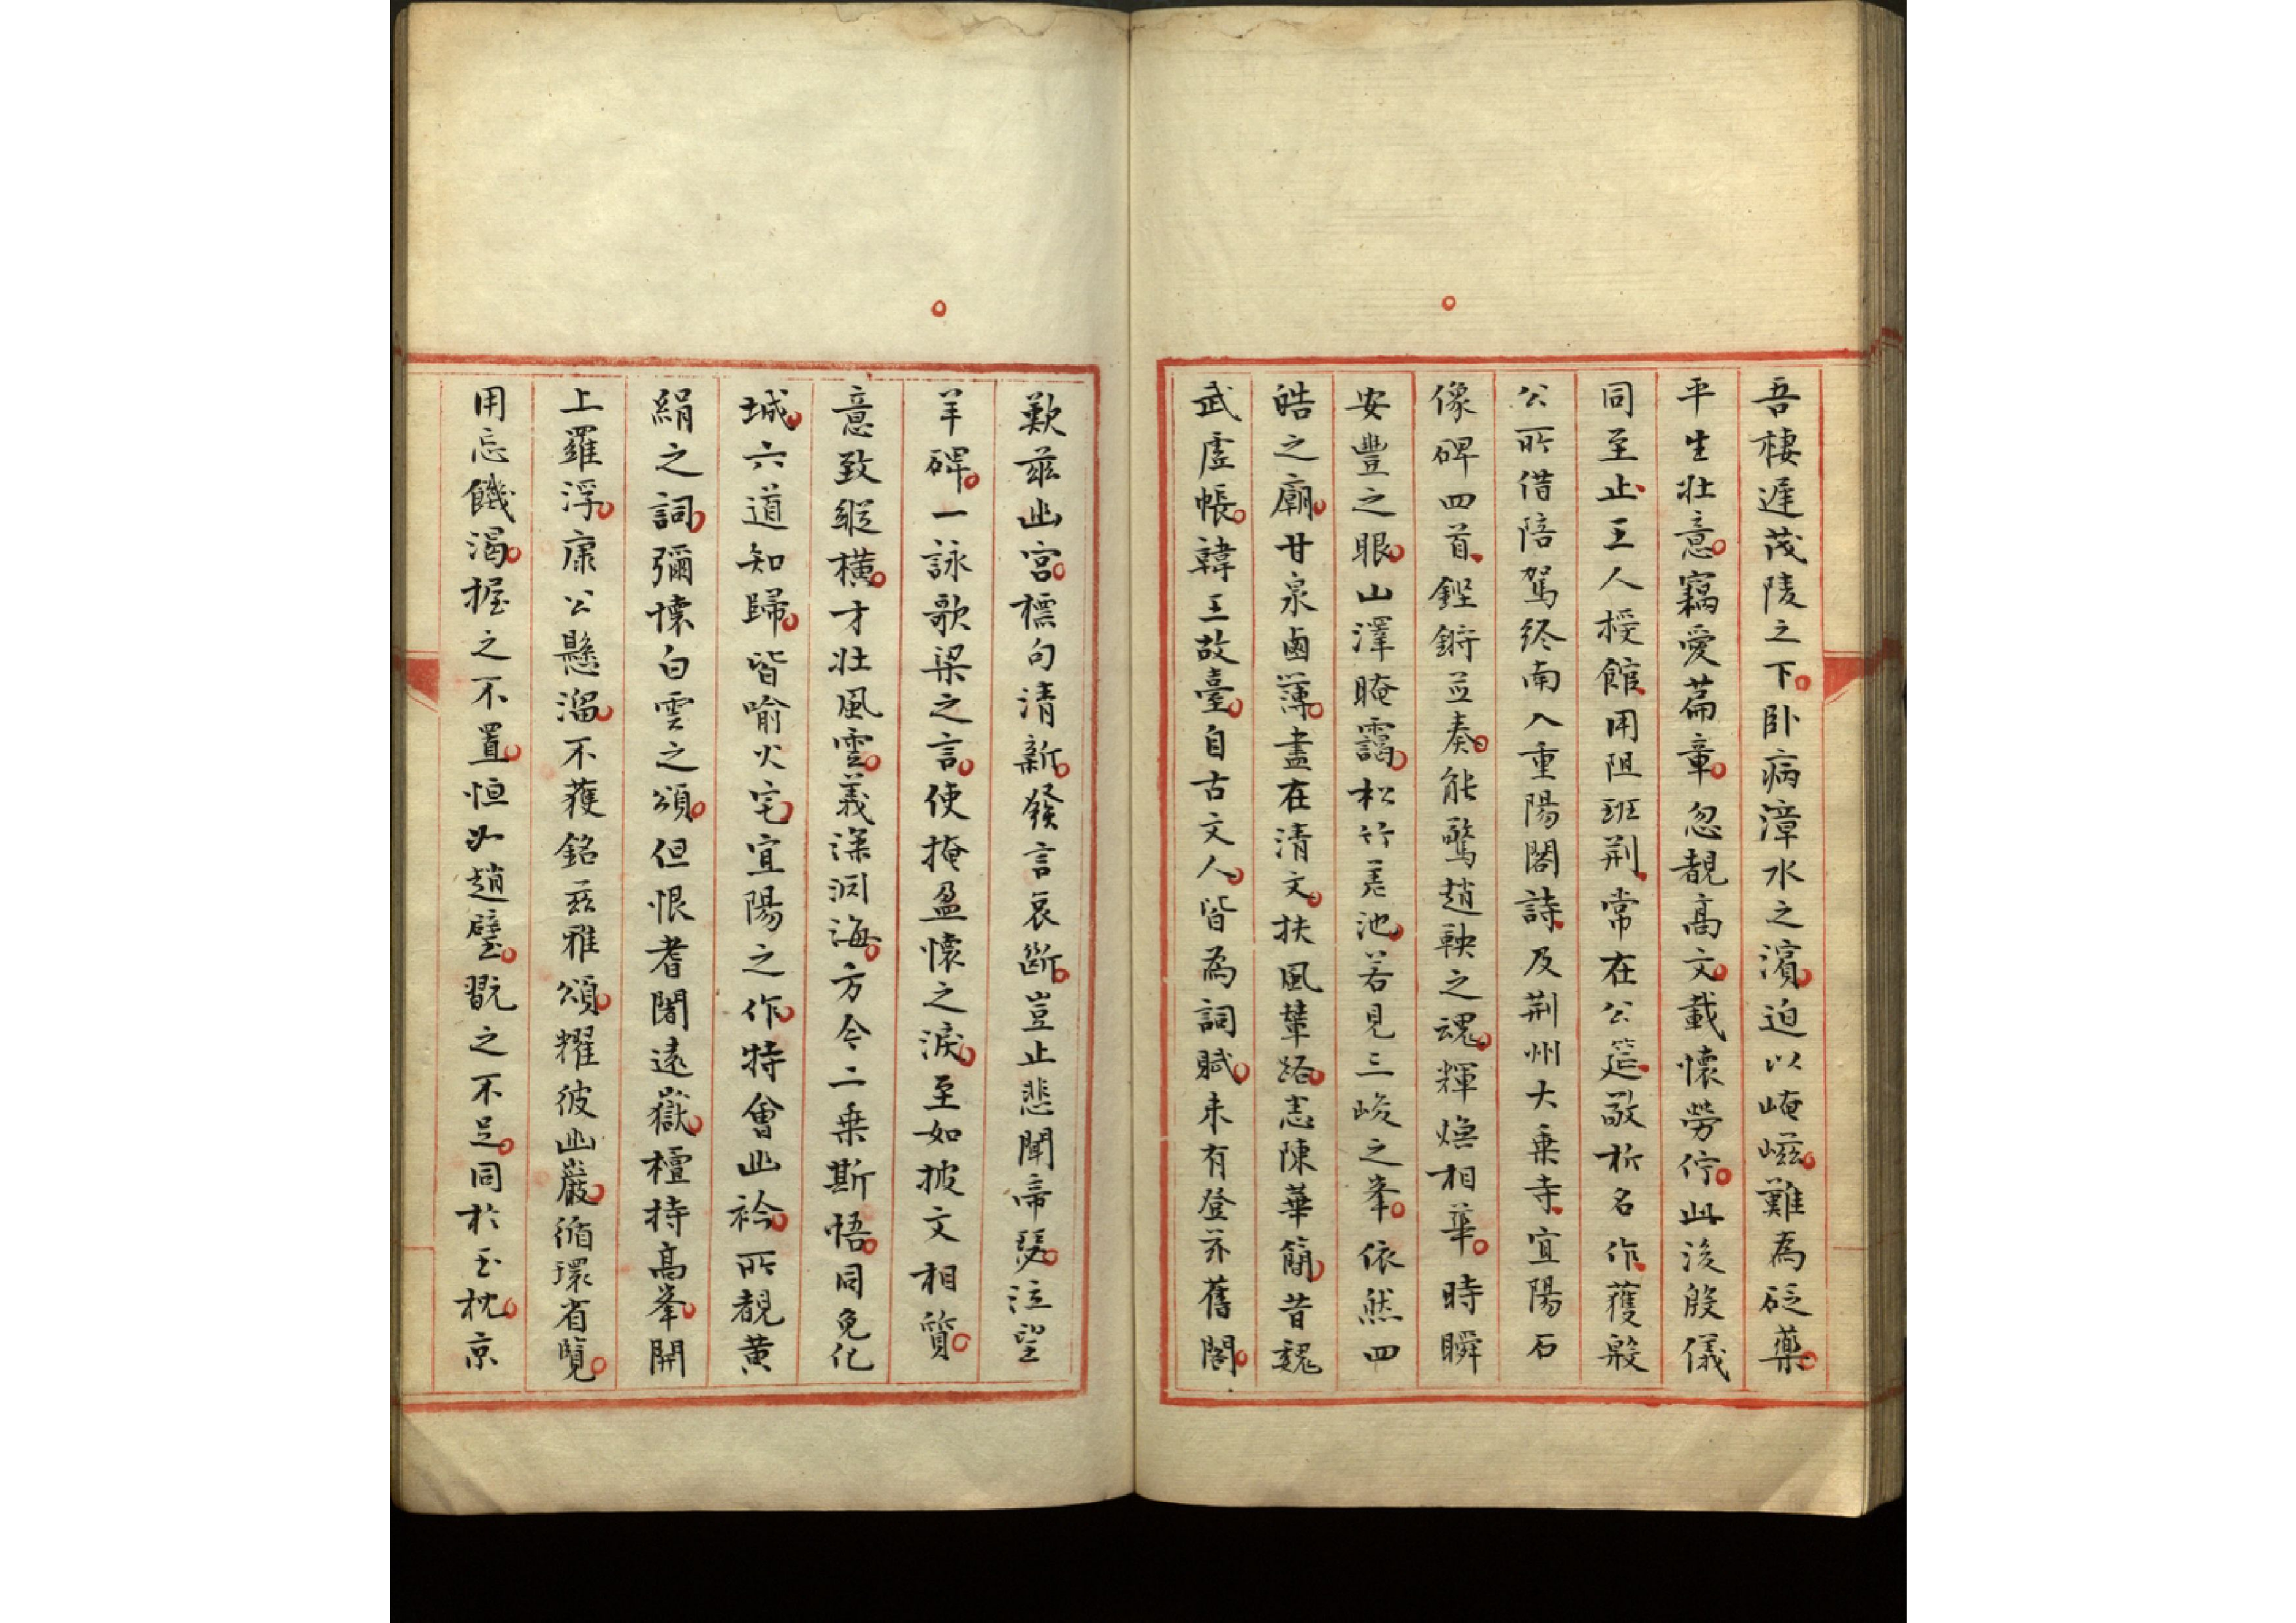 吾棲遲茂陵之下卧病漳水之濱迫以崦嵫難為砭藥
平生壯意竊愛篇章忽覩高文載懷勞佇此後殷儀
同至止王人授館用阻班荆常在公筵敬析名作獲殷
公所借陪駕終南入重陽閣詩及荆州大乗寺宜陽石
像碑四首鏗鏘並奏能驚趙鞅之魂輝煥相華時瞬
安豐之眼山澤晻靄松竹差池若見三峻之峯依然四
皓之廟甘泉鹵薄盡在清文扶風輦路悉陳華簡昔魏
武虗帳韓王故臺自古文人皆為詞賦未有登茲舊閣
歎兹幽宫標句清新發言哀斷豈止悲聞帝瑟泣望
羊碑一詠歌梁之言使掩盈懷之淚至如披文相質
意致縱横才壯風雲義深淵海方今二乗斯悟同免化
城六道知歸皆喻火宅宜陽之作特會幽衿所覩黄
絹之詞彌懷白雲之頌但恨耆闍遠嶽檀特高峯開
上羅浮康公懸溜不獲銘兹雅頌耀彼幽巖循環省覽
用忘饑渴握之不置恒如趙璧翫之不足同於玉枕京